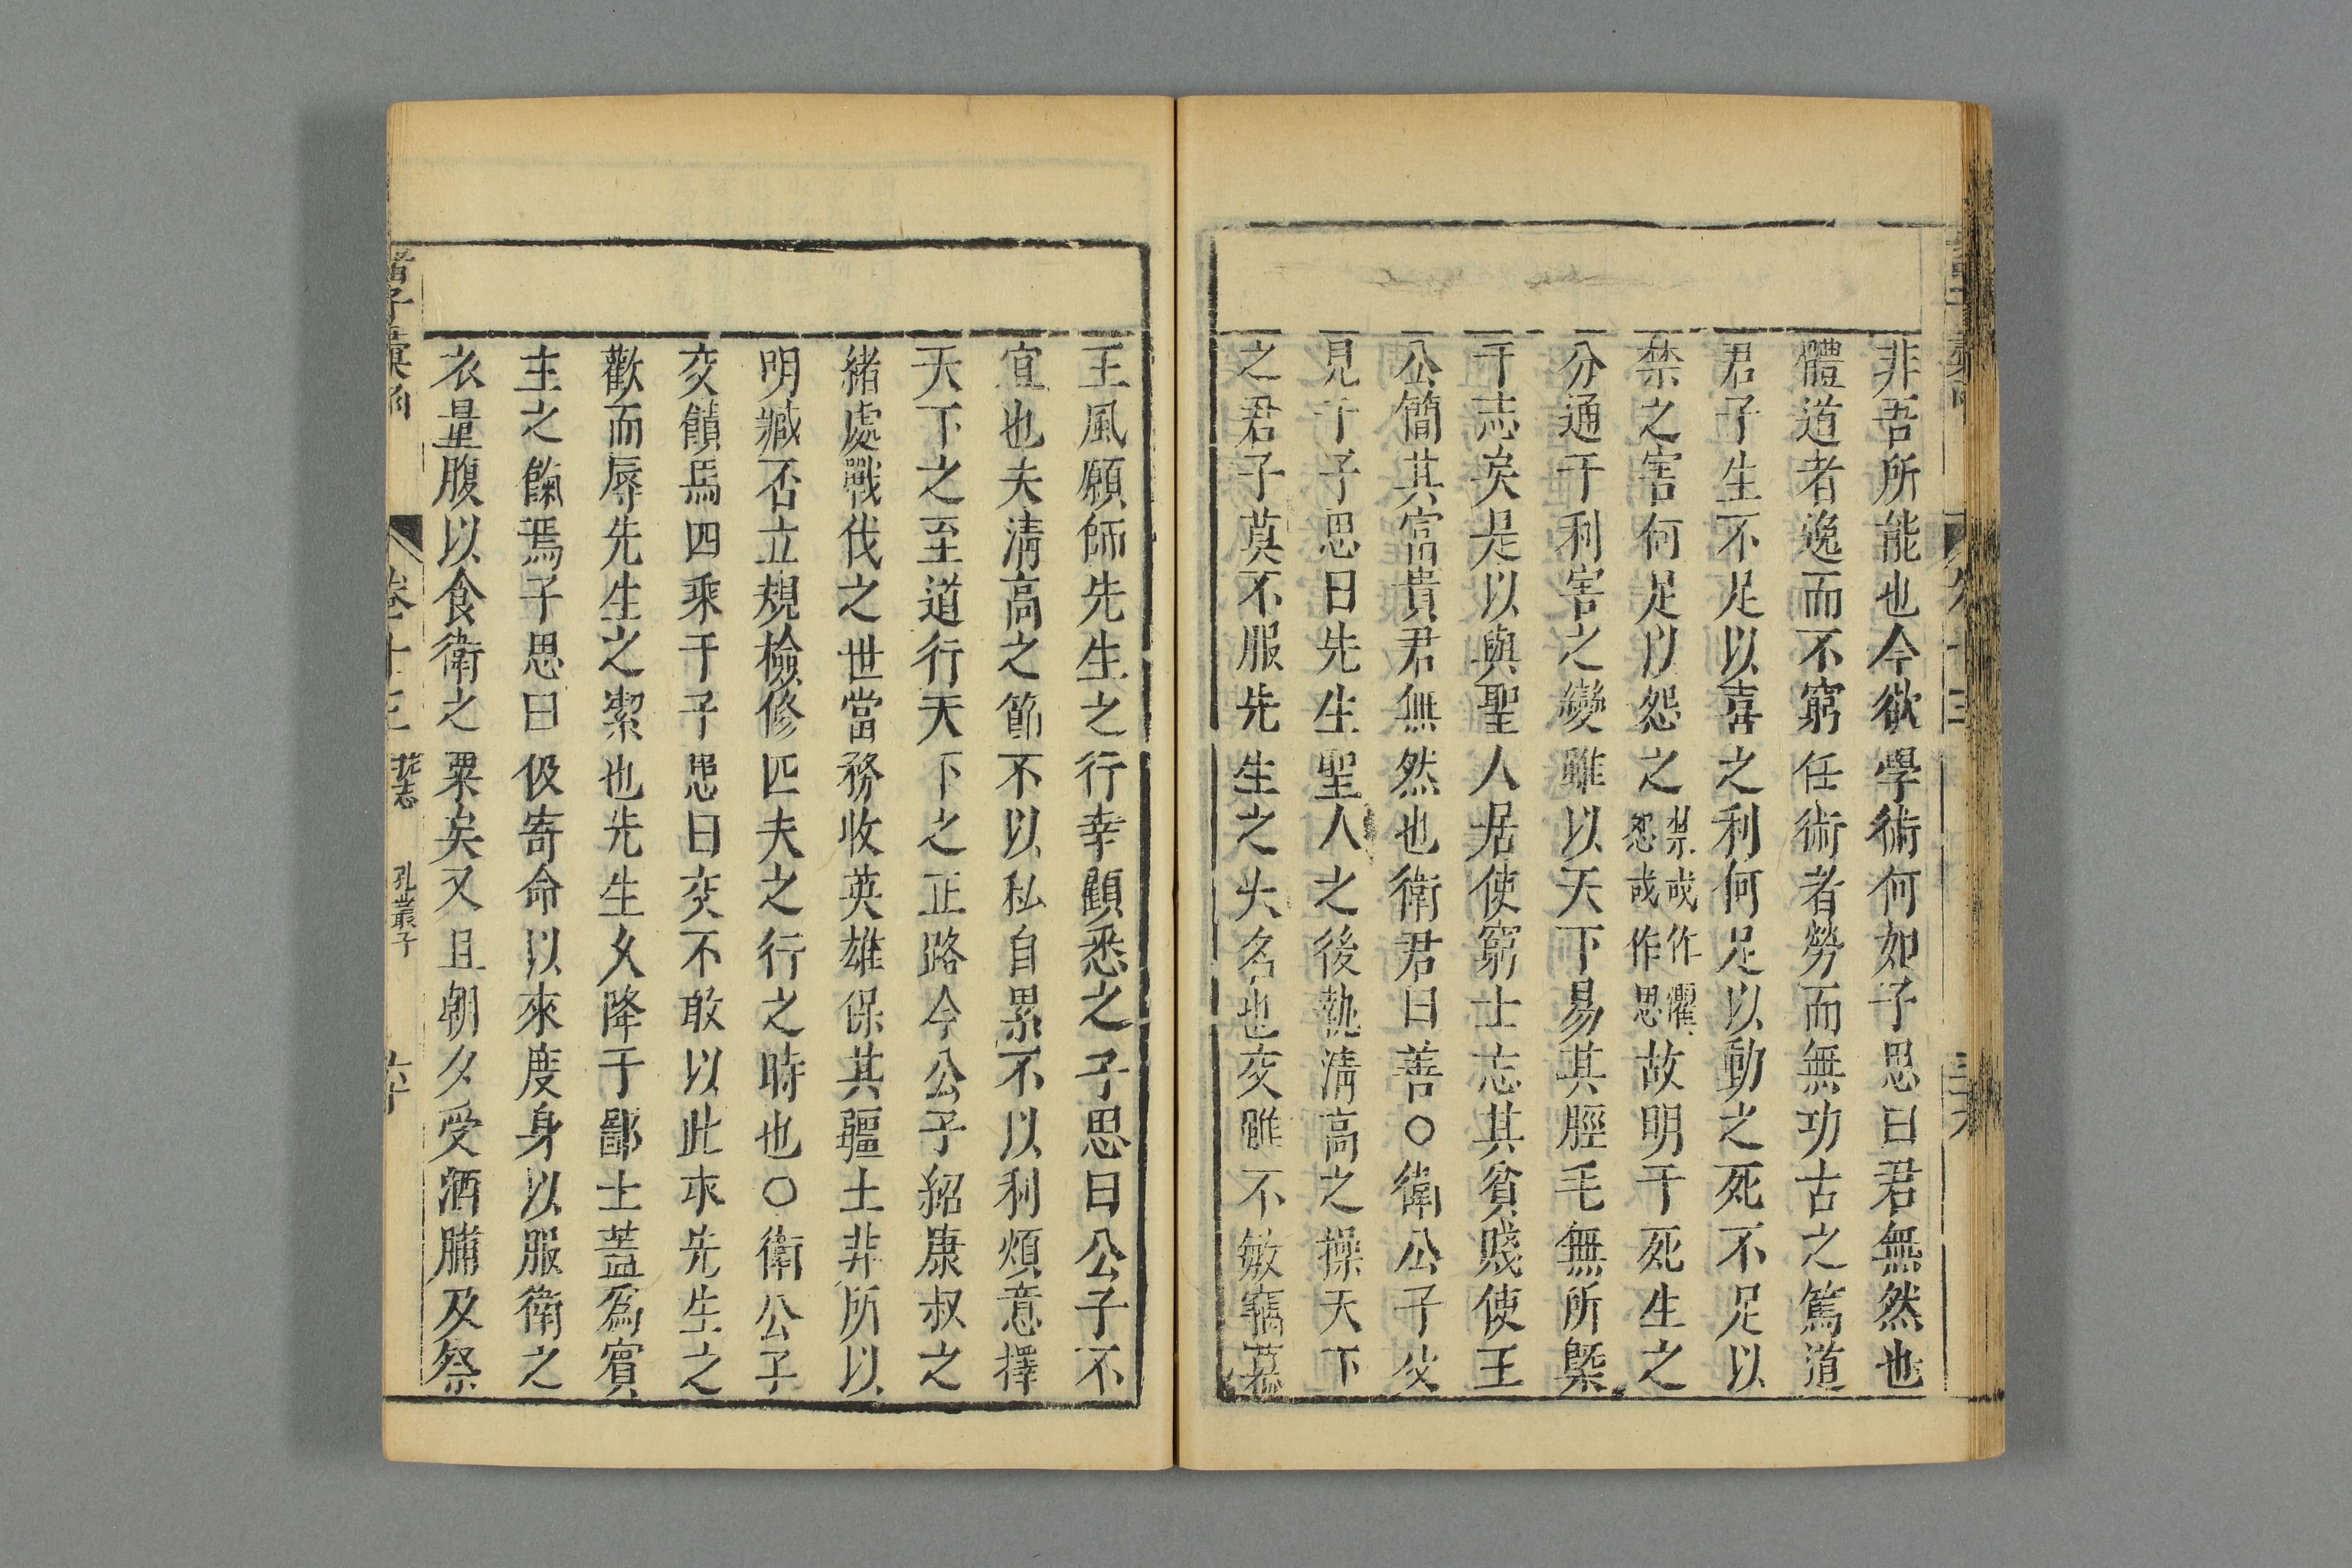 非吾所能也今欲學術何如子思曰君無然也
體道者逸而不窮任術者勞而無功古之篤道
君子生不足以喜之利何足以動之死不足以
禁之害何足以怨之禁或作懼怨或作思故明于死生之
分通于利害之變雖以天下易其脛毛無所槩
于志矣是以與聖人居使窮士志其貧賤使王
公簡其富貴君無然也衛君曰善○衛公子交
見于子思曰先生聖人之後執清高之操天下
之君子莫不服先生之大名也交雖不敏竊慕
王風願師先生之行幸顧悉之子思曰公子不
宜也夫清高之節不以私自累不以利煩意擇
天下之至道行天下之正路今公子紹康叔之
緒處戰伐之世當務收英雄保其疆土非所以
明臧否立規檢修匹夫之行之時也○衛公子
交饋馬四乘于子思曰交不敢以此求先生之
歡而辱先生之潔也先生久降于鄙土蓋爲賓
主之餼焉子思曰伋寄命以來度身以服衛之
衣量腹以食衛之粟矣又且朝夕受酒脯及祭
諸子彙函
卷十三
孔叢子